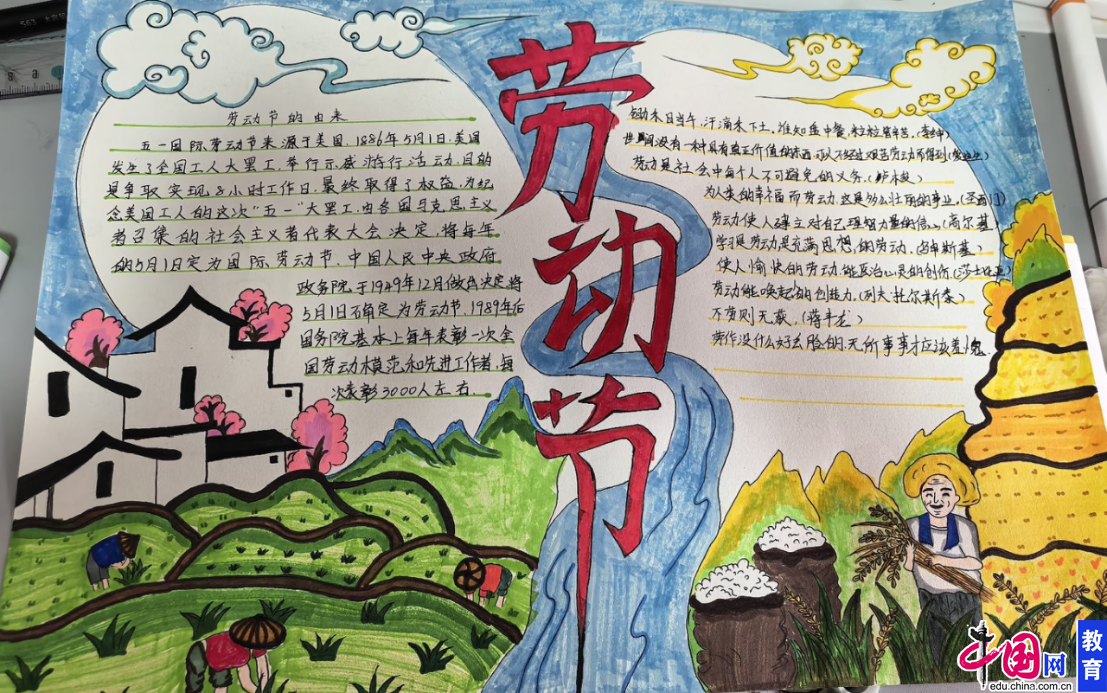 劳动节
劳动节的由来
五一国际劳动节来源于美国,1886年5月1日,美国
发生了全国工人大罢工,举行示威游行活动,目的
是争取实现8小时工作日,最终取得了权益,为纪
念美国工人的这次“五一”大罢工,由各国马克思主义
者召集的社会主义者代表大会决定,将每年
的5月1日定为国际劳动节,中国人民中央政府
政务院于1949年12月做出决定,将
5月1日确定为劳动节,1989年后
国务院基本上每年表彰一次全
国劳动模范和先进工作者,每
次表彰3000人左右.
锄禾日当午,汗滴禾下土,谁知盘中餐,粒粒皆辛苦。(李绅)
世间没有一种具有真正价值的东西,可以不经过艰苦劳动而得到
劳动是社会中每个人不可避免的义务。(卢梭)
为人类的幸福而劳动,这是多么壮丽的事业。(圣西门)
劳动使人建立对自己理智力量的信心(高尔基)
学习是劳动,是充满思想的劳动。
使人愉快的劳动,能医治心灵的创伤(莎士比亚)
劳动能唤起的创造力。(列夫托尔斯泰)
不劳则无获。
劳作没什么好丢脸的,无所事事才应该羞愧
中国网
edu.china.com.cn
教育
563